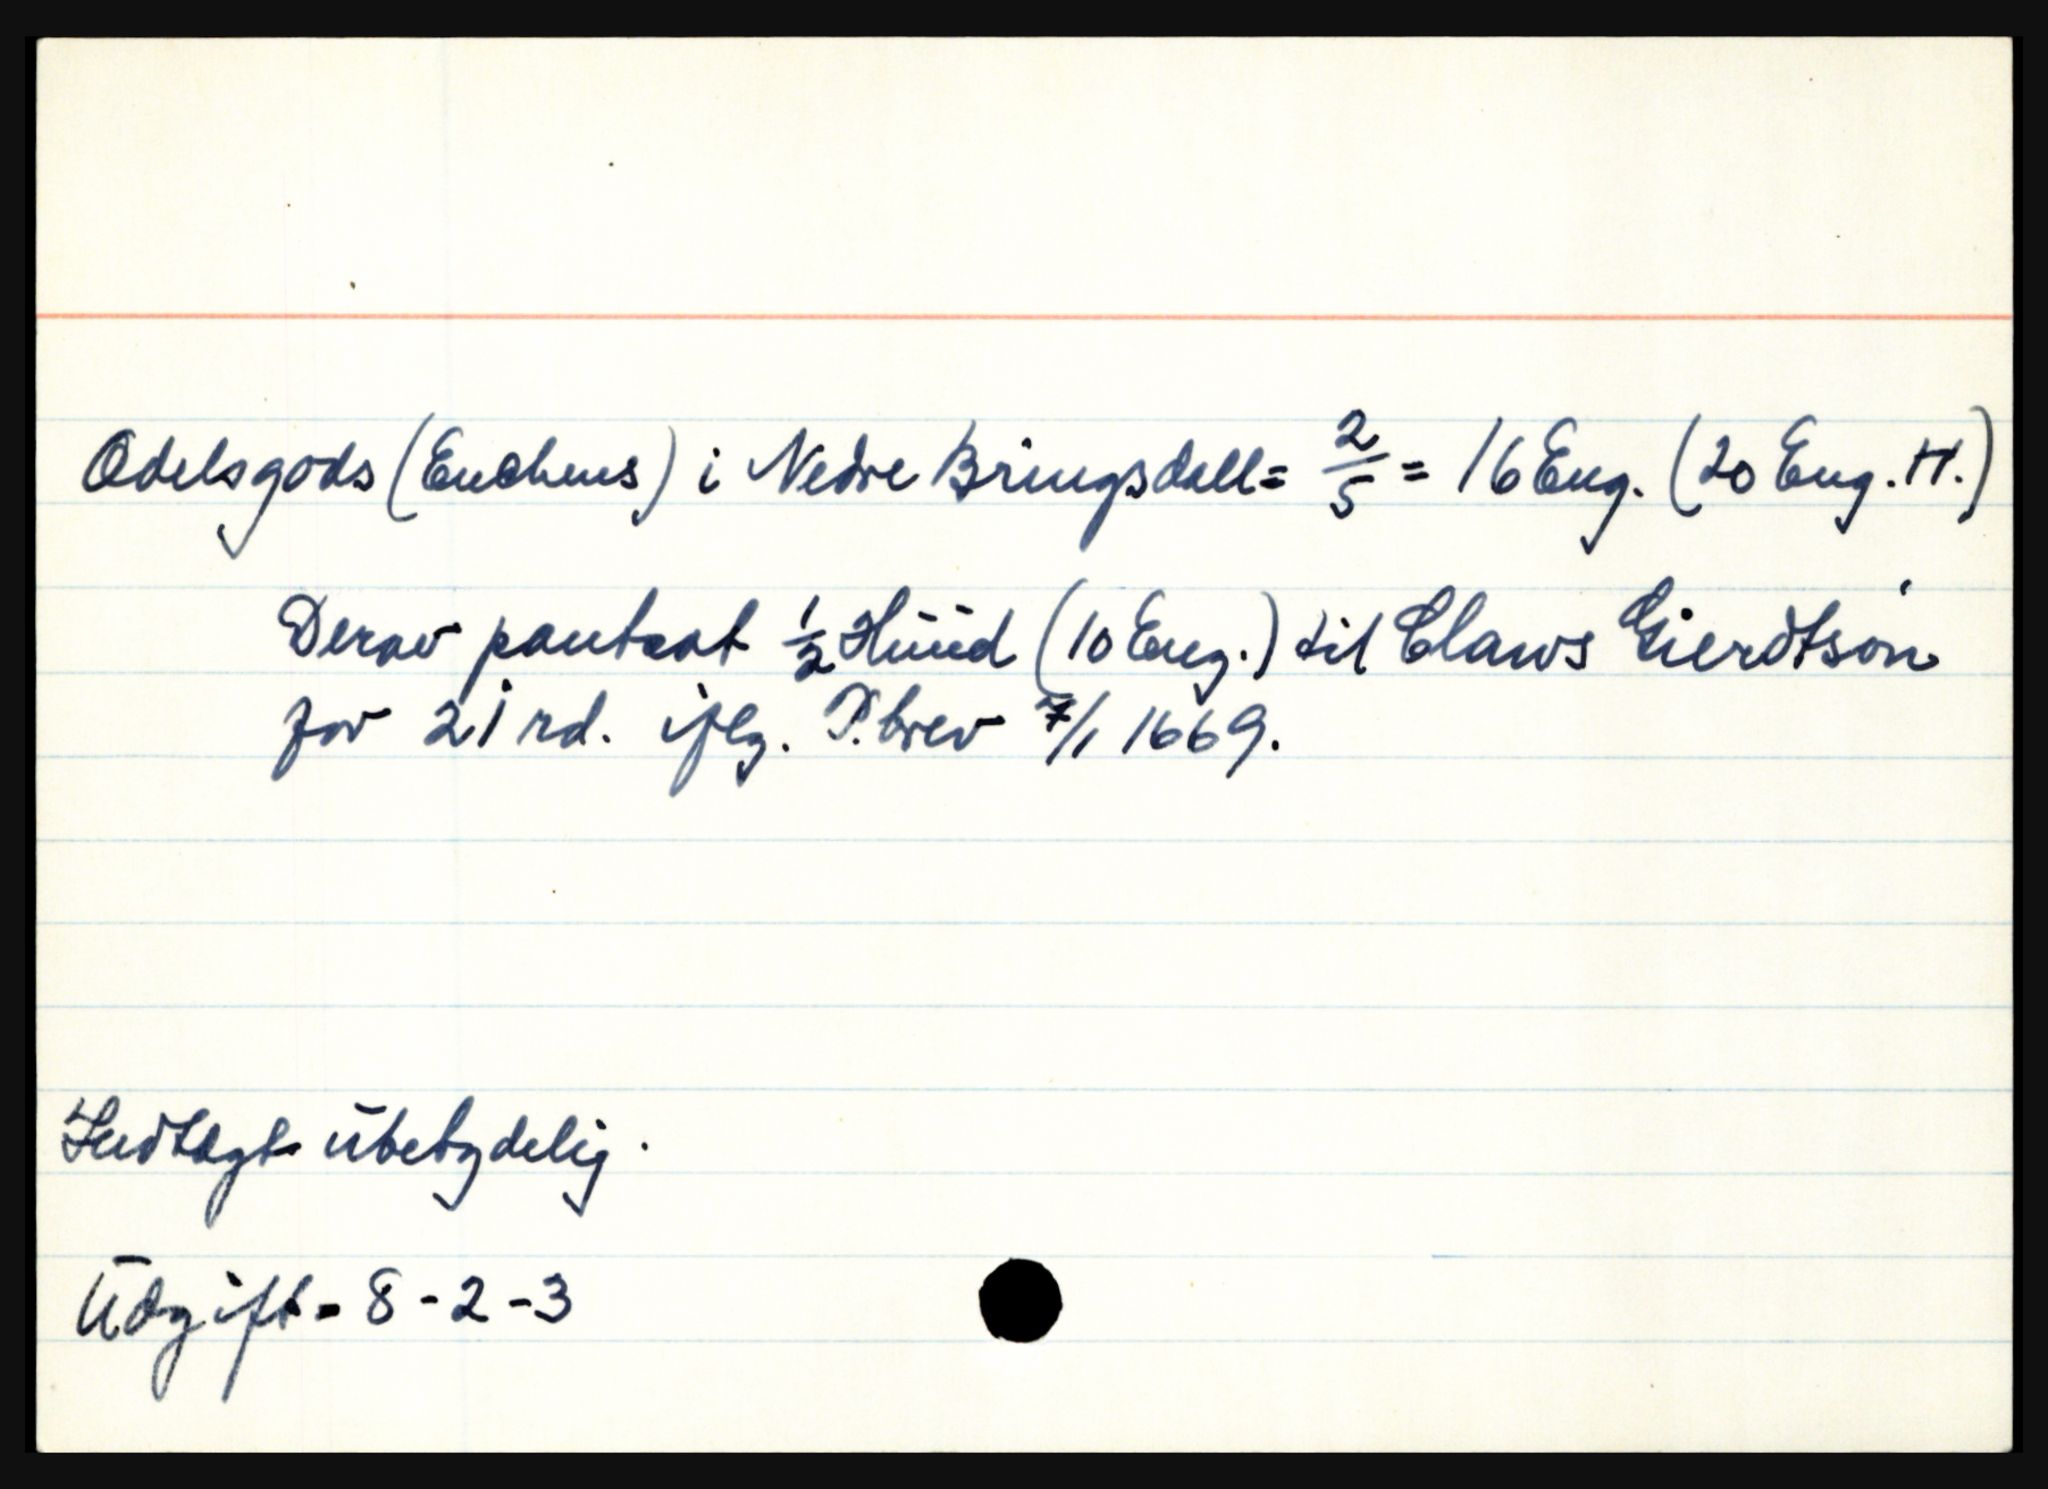 Odelsgods (Enchens) i Nedre Bringsdall = 2/5 = 16 Eng. (20 Eng. H.)
Derav pantsat 1/2 Hūūd (10 Eng.) til Claws Gierdtsøn
for 21 rd. iflg. P.brev 7/1 1669.
Indtægt ūbetydelig.
Ūdgift = 8 - 2 - 3